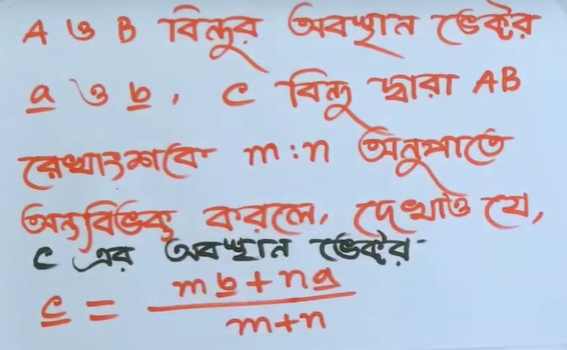 A ও B বিন্দুর অবস্থান ভেক্টর
a ও b, C বিন্দু দ্বারা AB
রেখাংশকে m:n অনুপাতে
অন্তর্বিভক্ত করলে, দেখাও যে,
C এর অবস্থান ভেক্টর
c = mb+na / m+n